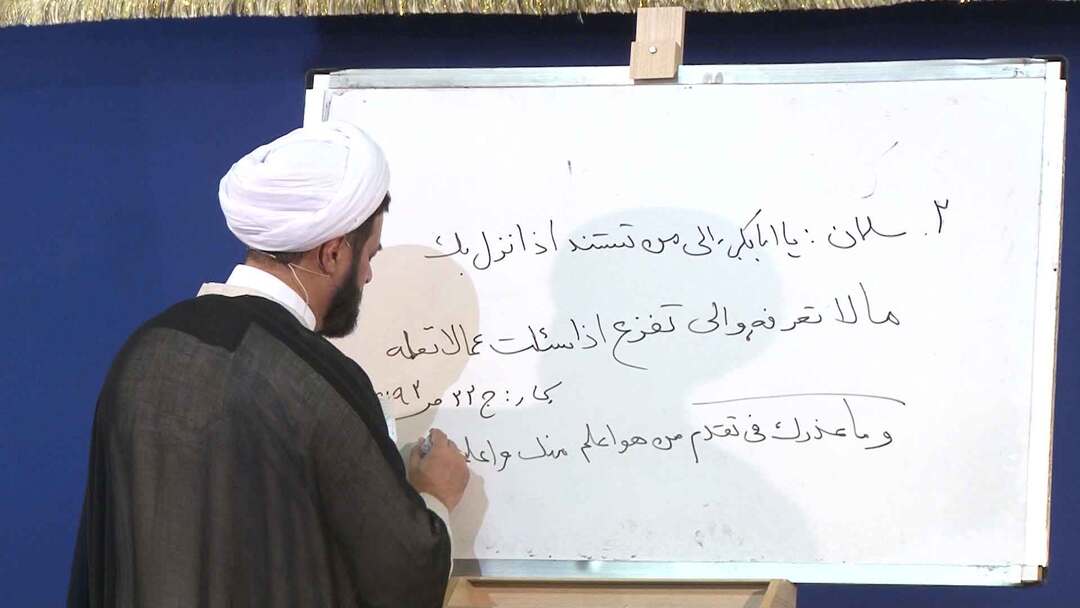 ۲. سلمان : یا ابابکر، الی من تستند اذا نزل بک
مالا تعرفه والی تفزع اذا سئلت عمالا تعلمه
بحار : ج ۲۲
وما عذرک فی تقدم من هو اعلم منک و